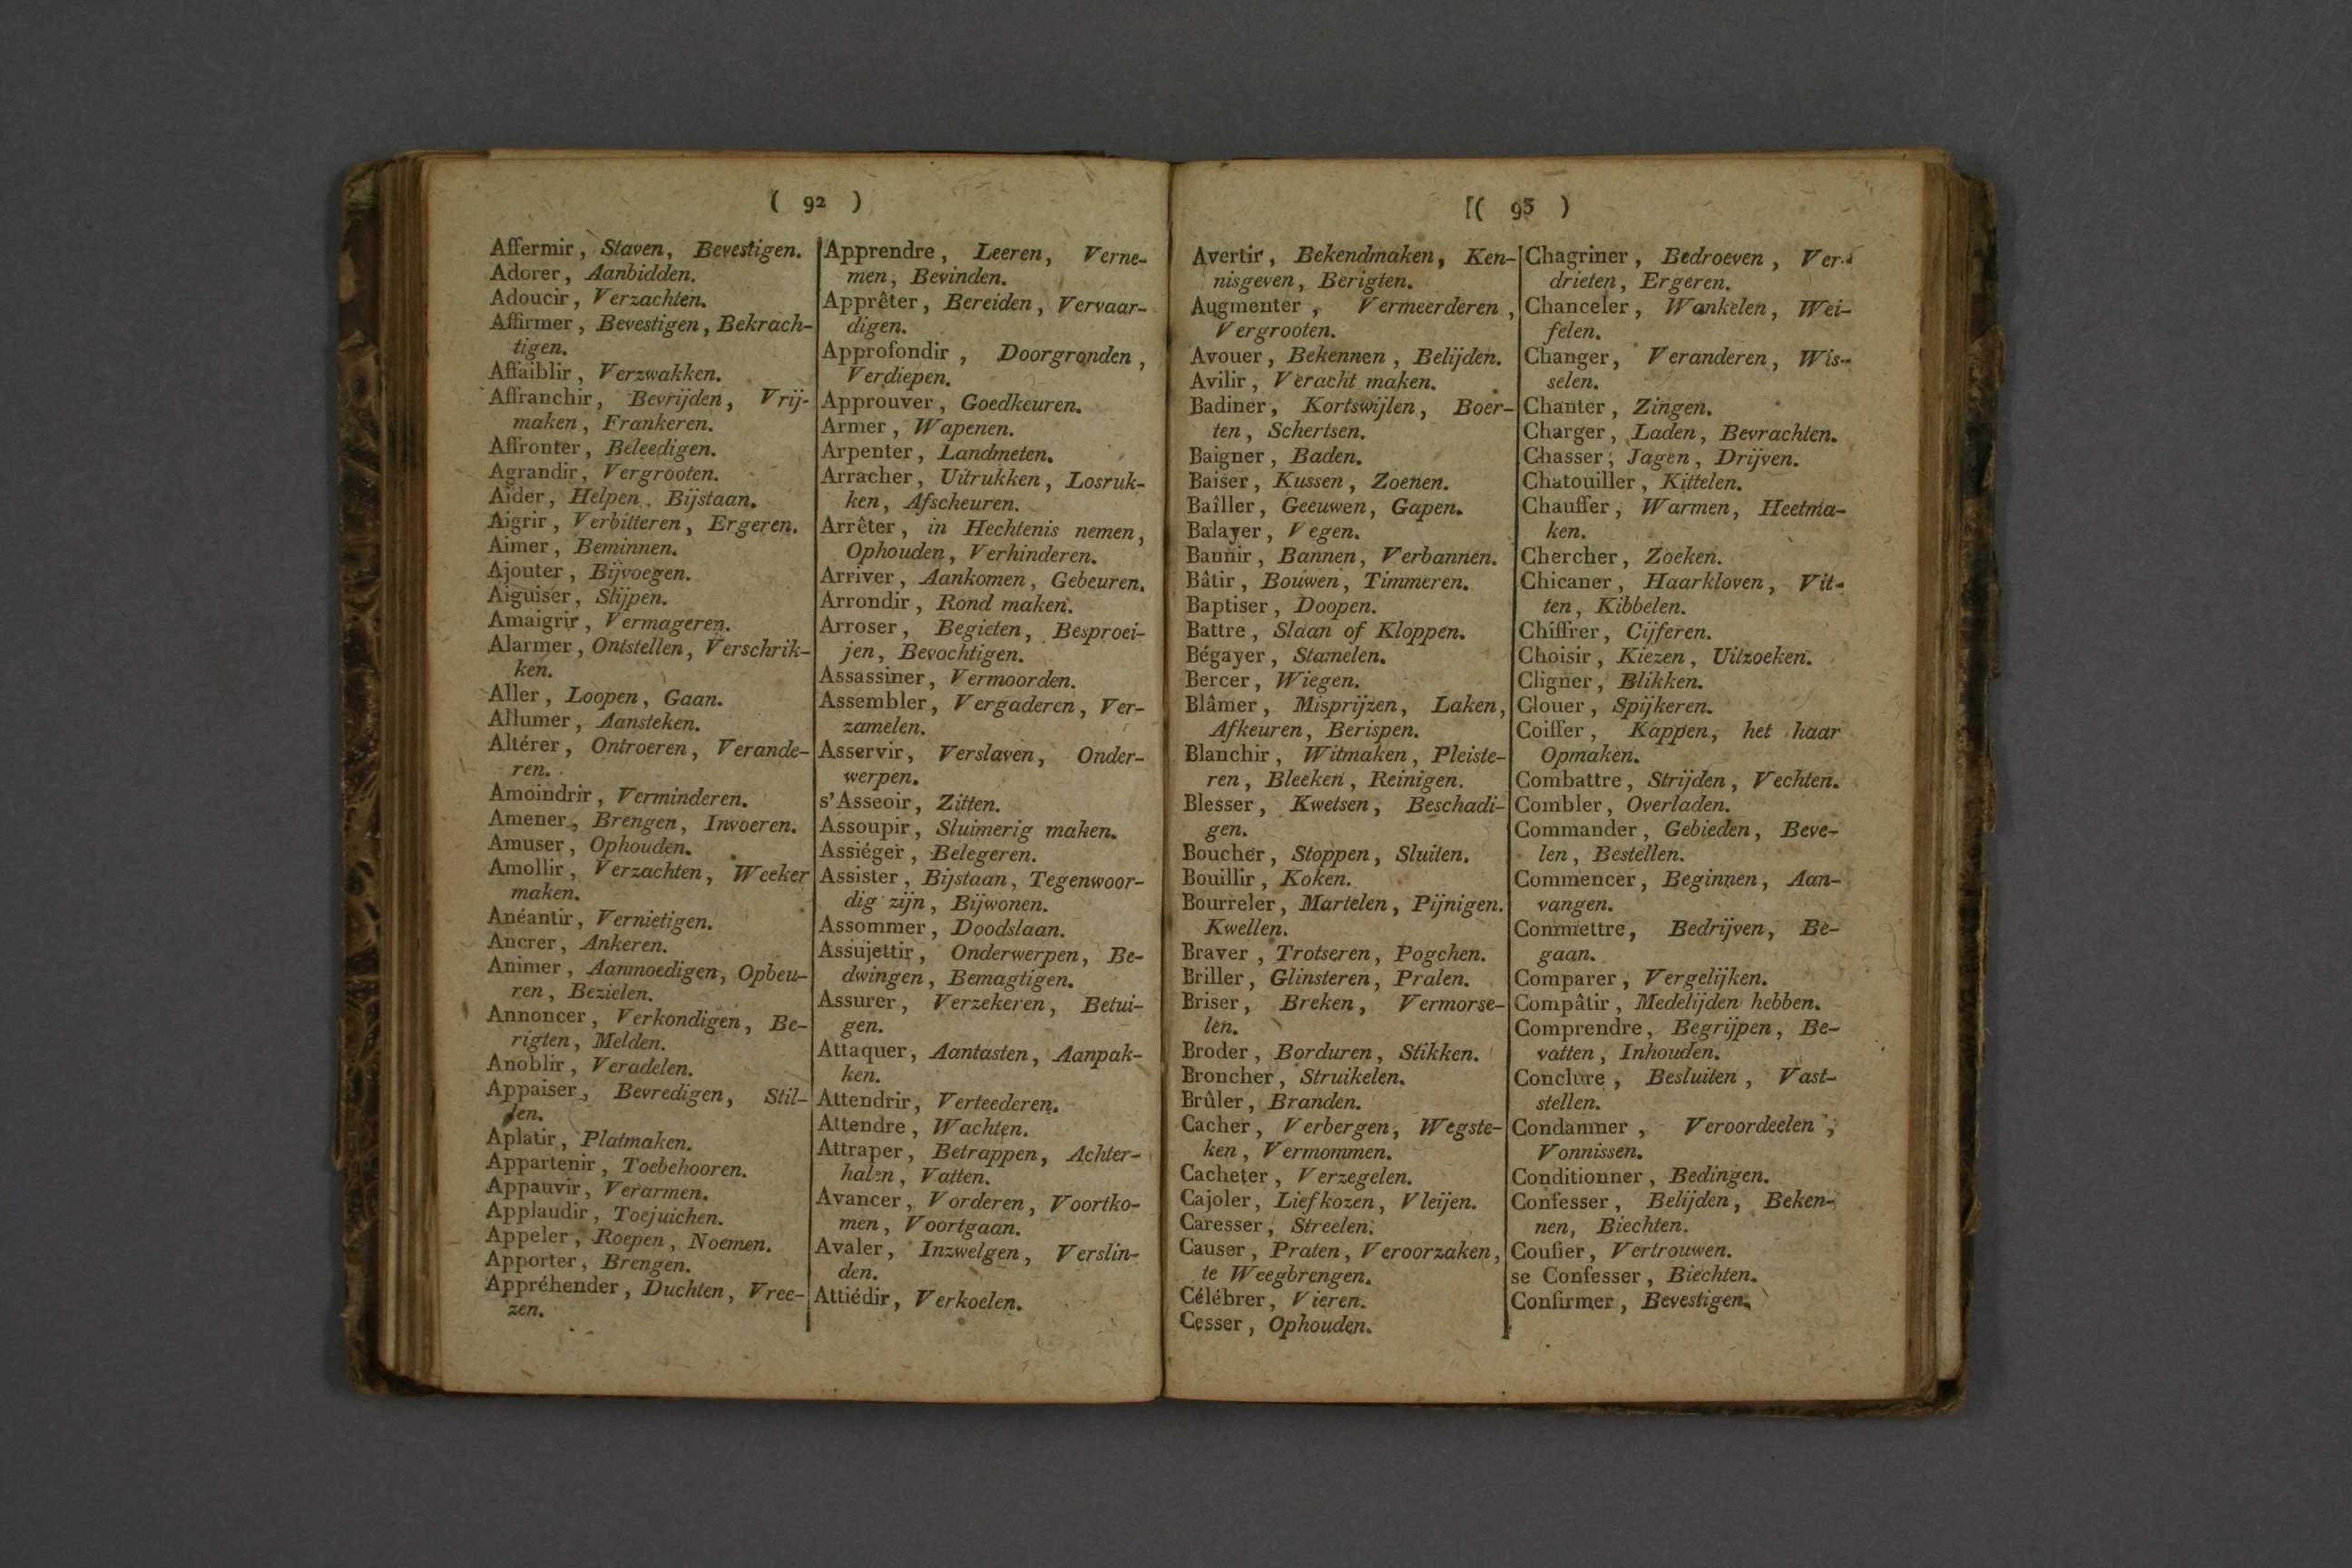 ( 92 )
Affermir, Staven, Bevestigen.
Adorer, Aanbidden.
Adoucir, Verzachten.
Affirmer, Bevestigen, Bekrach-
tigen.
Affaiblir, Verzwakken.
Affranchir, Bevrijden, Vrij-
maken, Frankeren.
Affronter, Beleedigen.
Agrandir, Vergrooten.
Aider, Helpen, Bijstaan.
Aigrir, Verbitteren, Ergeren.
Aimer, Beminnen.
Ajouter, Bijvoegen.
Aiguiser, Slijpen.
Amaigrir, Vermageren.
Alarmer, Ontstellen, Verschrik-
ken.
Aller, Loopen, Gaan.
Allumer, Aansteken.
Altérer, Ontroeren, Verande-
ren.
Amoindrir, Verminderen.
Amener, Brengen, Invoeren.
Amuser, Ophouden.
Amollir, Verzachten, Weeker
maken.
Anéantir, Vernietigen.
Ancrer, Ankeren.
Animer, Aanmoedigen, Opbeu-
ren, Bezielen.
Annoncer, Verkondigen, Be-
rigten, Melden.
Anoblir, Veradelen.
Appaiser, Bevredigen, Stil-
len.
Aplatir, Platmaken.
Appartenir, Toebehooren.
Appauvir, Verarmen.
Applaudir, Toejuichen.
Appeler, Roepen, Noemen.
Apporter, Brengen.
Appréhender, Duchten, Vree-
zen.
Apprendre, Leeren, Verne-
men, Bevinden.
Apprêter, Bereiden, Vervaar-
digen.
Approfondir, Doorgronden,
Verdiepen.
Approuver, Goedkeuren.
Armer, Wapenen.
Arpenter, Landmeten.
Arracher, Uitrukken, Losruk-
ken, Afscheuren.
Arrêter, in Hechtenis nemen,
Ophouden, Verhinderen.
Arriver, Aankomen, Gebeuren.
Arrondir, Rond maken.
Arroser, Begieten, Besproei-
jen, Bevochtigen.
Assassiner, Vermoorden.
Assembler, Vergaderen, Ver-
zamelen.
Asservir, Verslaven, Onder-
werpen.
s'Asseoir, Zitten.
Assoupir, Sluimerig maken.
Assiéger, Belegeren.
Assister, Bijstaan, Tegenwoor-
dig zijn, Bijwonen.
Assommer, Doodslaan.
Assujettir, Onderwerpen, Be-
dwingen, Bemagtigen.
Assurer, Verzekeren, Betui-
gen.
Attaquer, Aantasten, Aanpak-
ken.
Attendrir, Verteederen.
Attendre, Wachten.
Attraper, Betrappen, Achter-
halen, Vatten.
Avancer, Vorderen, Voortko-
men, Voortgaan.
Avaler, Inzwelgen, Verslin-
den.
Attiédir, Verkoelen.
[( 93 )
Avertir, Bekendmaken, Ken-
nisgeven, Berigten.
Augmenter, Vermeerderen,
Vergrooten.
Avouer, Bekennen, Belijden.
Avilir, Veracht maken.
Badiner, Kortswijlen, Boer-
ten, Schertsen.
Baigner, Baden.
Baiser, Kussen, Zoenen.
Baîller, Geeuwen, Gapen.
Balayer, Vegen.
Bannir, Bannen, Verbannen.
Bâtir, Bouwen, Timmeren.
Baptiser, Doopen.
Battre, Slaan of Kloppen.
Bégayer, Stamelen.
Bercer, Wiegen.
Blâmer, Misprijzen, Laken,
Afkeuren, Berispen.
Blanchir, Witmaken, Pleiste-
ren, Bleeken, Reinigen.
Blesser, Kwetsen, Beschadi-
gen.
Boucher, Stoppen, Sluiten.
Bouillir, Koken.
Bourreler, Martelen, Pijnigen.
Kwellen.
Braver, Trotseren, Pogchen.
Briller, Glinsteren, Pralen.
Briser, Breken, Vermorse-
len.
Broder, Borduren, Stikken.
Broncher, Struikelen.
Brûler, Branden.
Cacher, Verbergen, Wegste-
ken, Vermommen.
Cacheter, Verzegelen.
Cajoler, Liefkozen, Vleijen.
Caresser, Streelen.
Causer, Praten, Veroorzaken,
te Weegbrengen.
Célébrer, Vieren.
Cesser, Ophouden.
Chagriner, Bedroeven, Ver-
drieten, Ergeren.
Chanceler, Wankelen, Wei-
felen.
Changer, Veranderen, Wis-
selen.
Chanter, Zingen.
Charger, Laden, Bevrachten.
Chasser, Jagen, Drijven.
Chatouiller, Kittelen.
Chauffer, Warmen, Heetma-
ken.
Chercher, Zoeken.
Chicaner, Haarkloven, Vit-
ten, Kibbelen.
Chiffrer, Cijferen.
Choisir, Kiezen, Uitzoeken.
Cligner, Blikken.
Clouer, Spijkeren.
Coiffer, Kappen, het haar
Opmaken.
Combattre, Strijden, Vechten.
Combler, Overladen.
Commander, Gebieden, Beve-
len, Bestellen.
Commencer, Beginnen, Aan-
vangen.
Commettre, Bedrijven, Be-
gaan.
Comparer, Vergelijken.
Compâtir, Medelijden hebben.
Comprendre, Begrijpen, Be-
vatten, Inhouden.
Conclure, Besluiten, Vast-
stellen.
Condamner, Veroordeelen,
Vonnissen.
Conditionner, Bedingen.
Confesser, Belijden, Beken-
nen, Biechten.
Coufier, Vertrouwen.
se Confesser, Biechten.
Confirmer, Bevestigen.